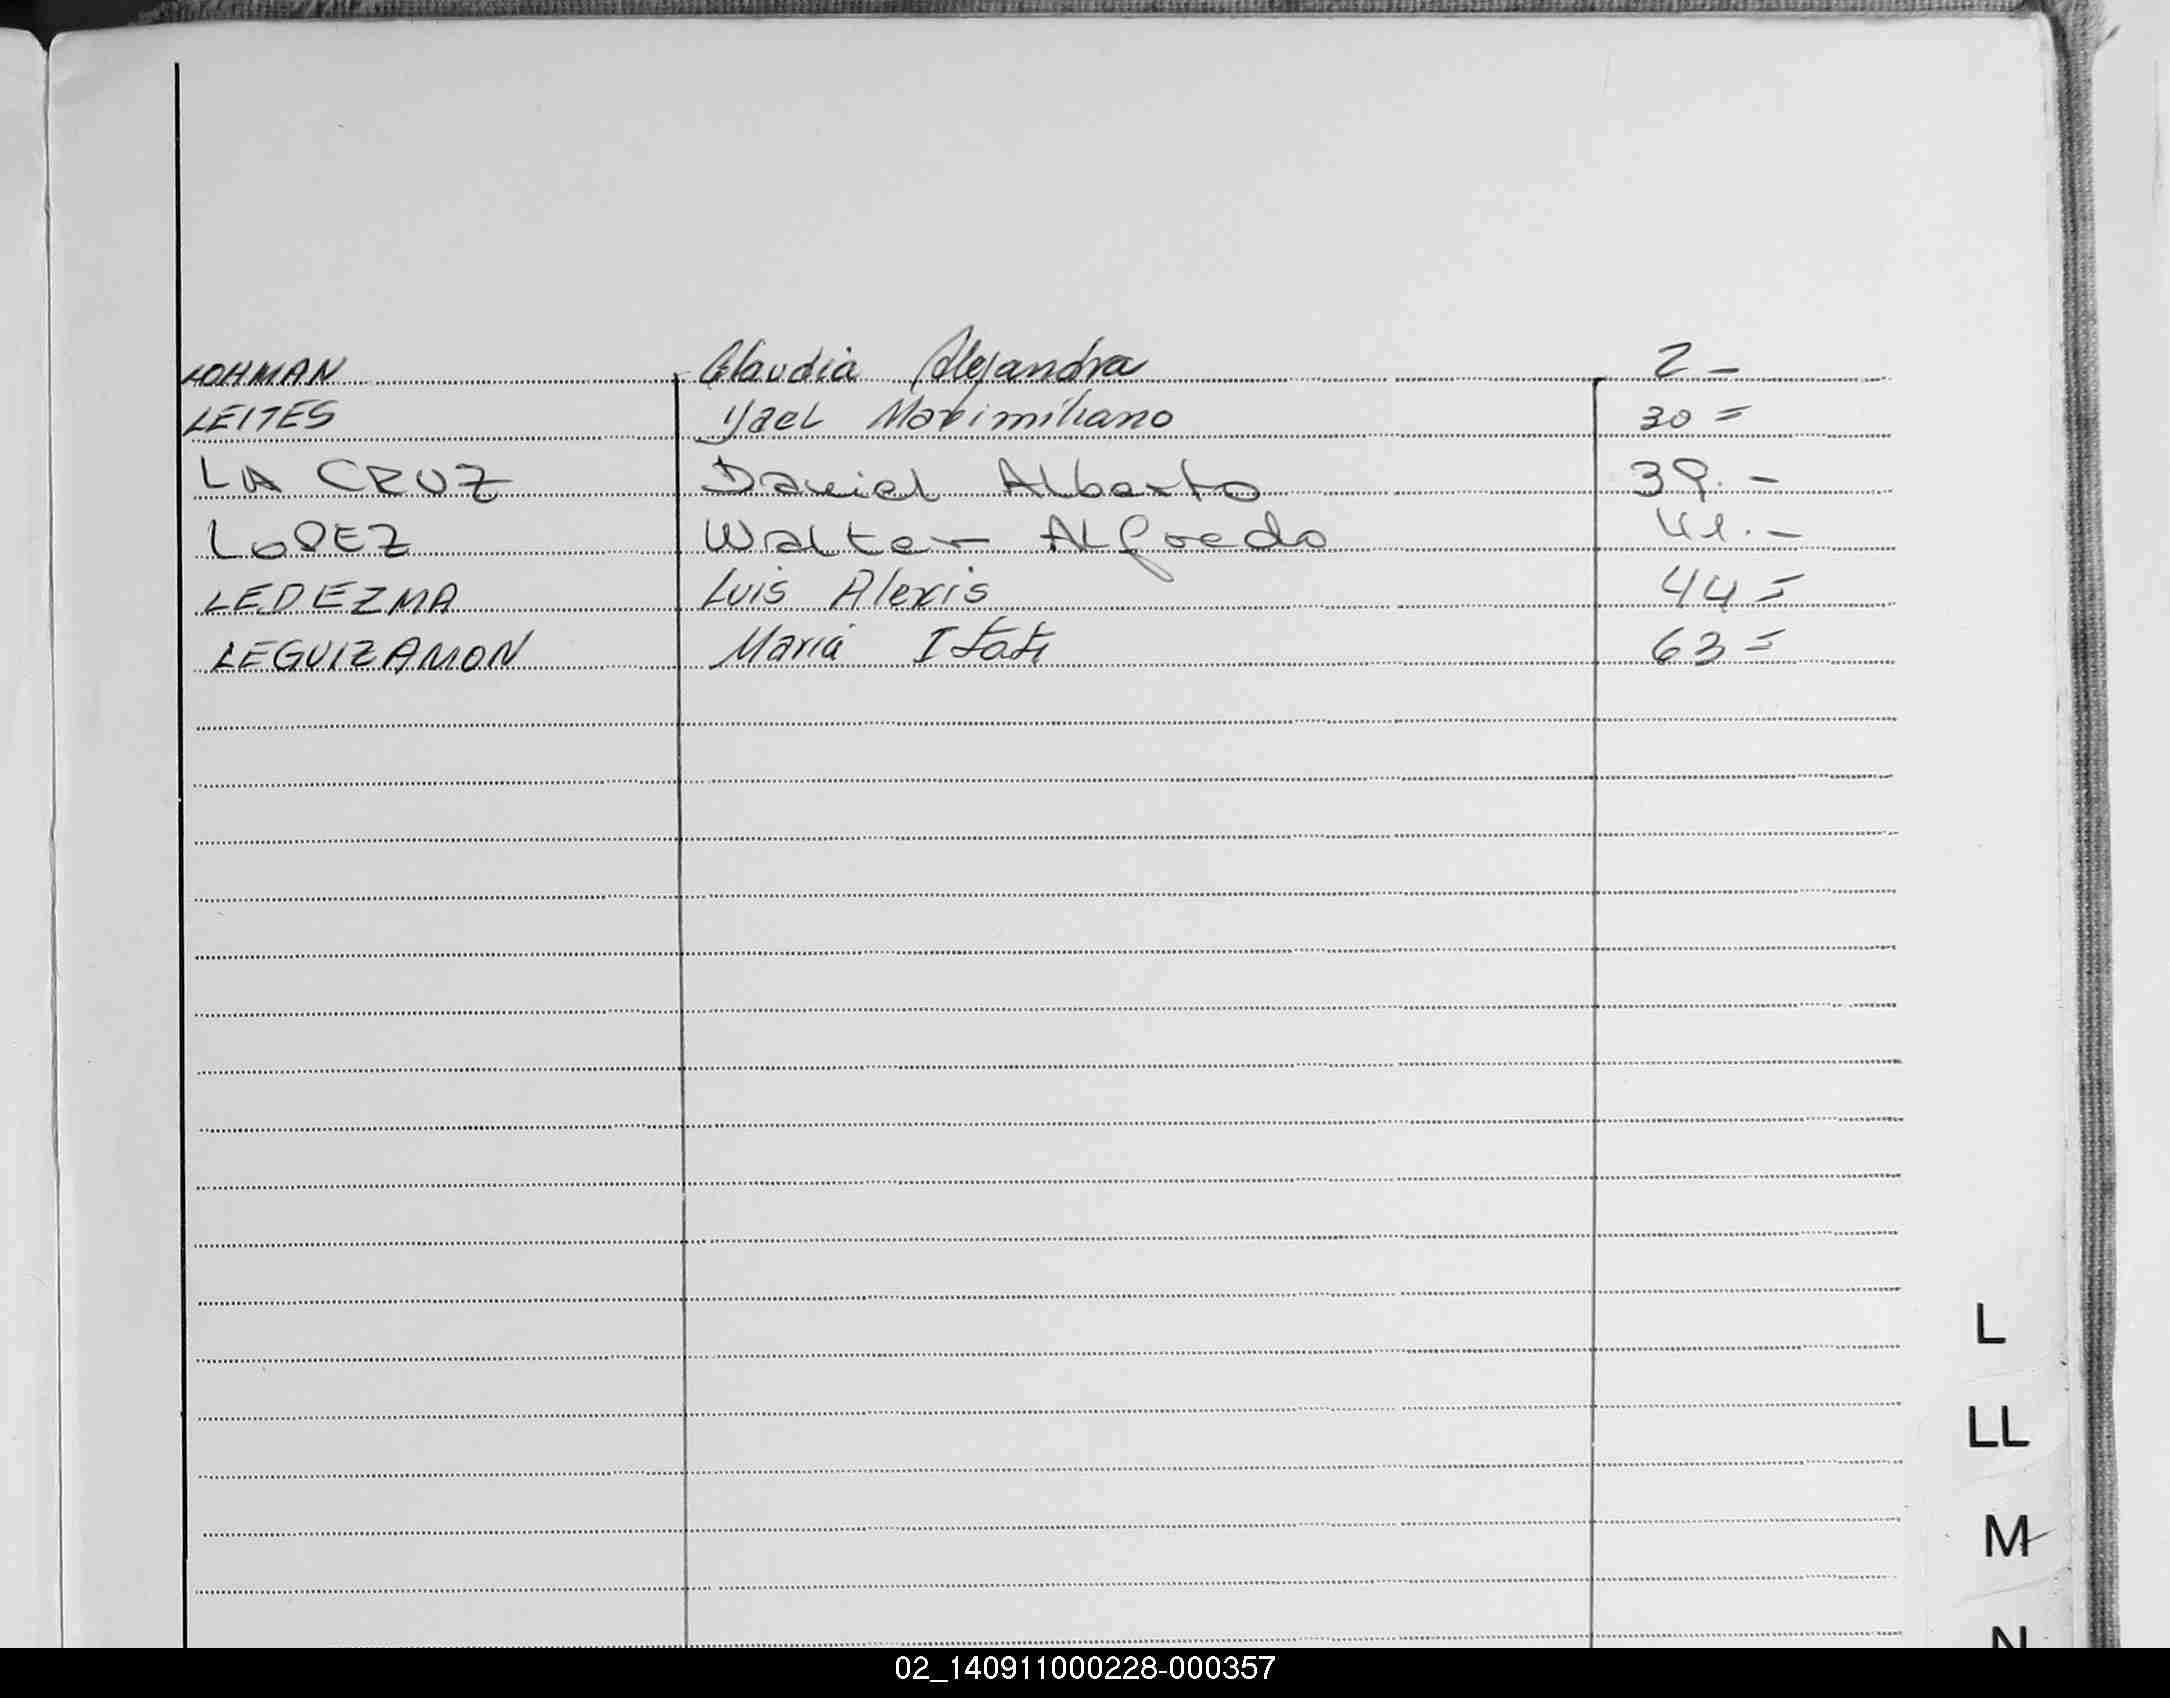 LOHMAN Claudia Alejandra 2 -
LEITES Yael Maximiliano 30 =
LA CRUZ Daniel Alberto 39. -
LOPEZ Walter Alfredo 41. -
LEDEZMA Luis Alexis 44 =
LEGUIZAMON Maria Itati 63 =
L
LL
M
N
02_140911000228-000357